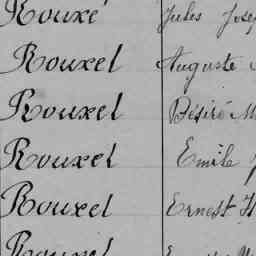 Rouxé Jules
Rouxel Auguste
Rouxel Désiré M
Rouxel Emile
Rouxel Ernest
Rouxel